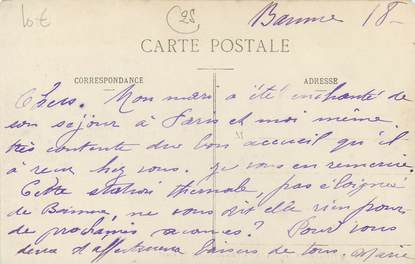 10 €
25
Bainne 18-
CARTE POSTALE
CORRESPONDANCE
ADRESSE
Chers. Mon mari a été enchanté de
son séjour à Paris et moi même
très contente du bon accueil qu'il
à reçu chez vous. je vous en remercie.
Cette station thermale, pas éloignée
de Bainne, ne vous dit elle rien pour
de prochaines vacances? Pour vous
deux d'affectueux baisers de tous. Marie